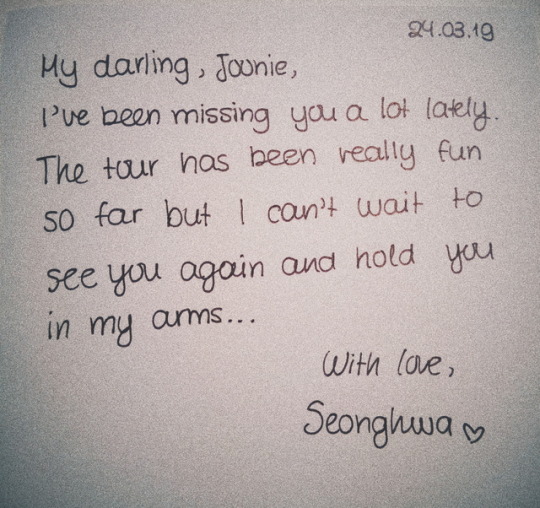 24.03.19
My darling, Joonie,
I've been missing you a lot lately.
The tour has been really fun
so far but I can't wait to
see you again and hold you
in my arms...
With love,
Seonghwa ♡